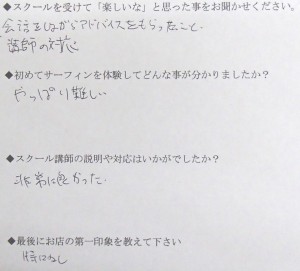 ◆スクールを受けて「楽しいな」と思った事をお聞かせください。
会話をしながらアドバイスをもらったこと.
講師の対応
◆初めてサーフィンを体験してどんな事が分かりましたか？
やっぱり難しい
◆スクール講師の説明や対応はいかがでしたか？
非常に良かった.
◆最後にお店の第一印象を教えて下さい
特になし